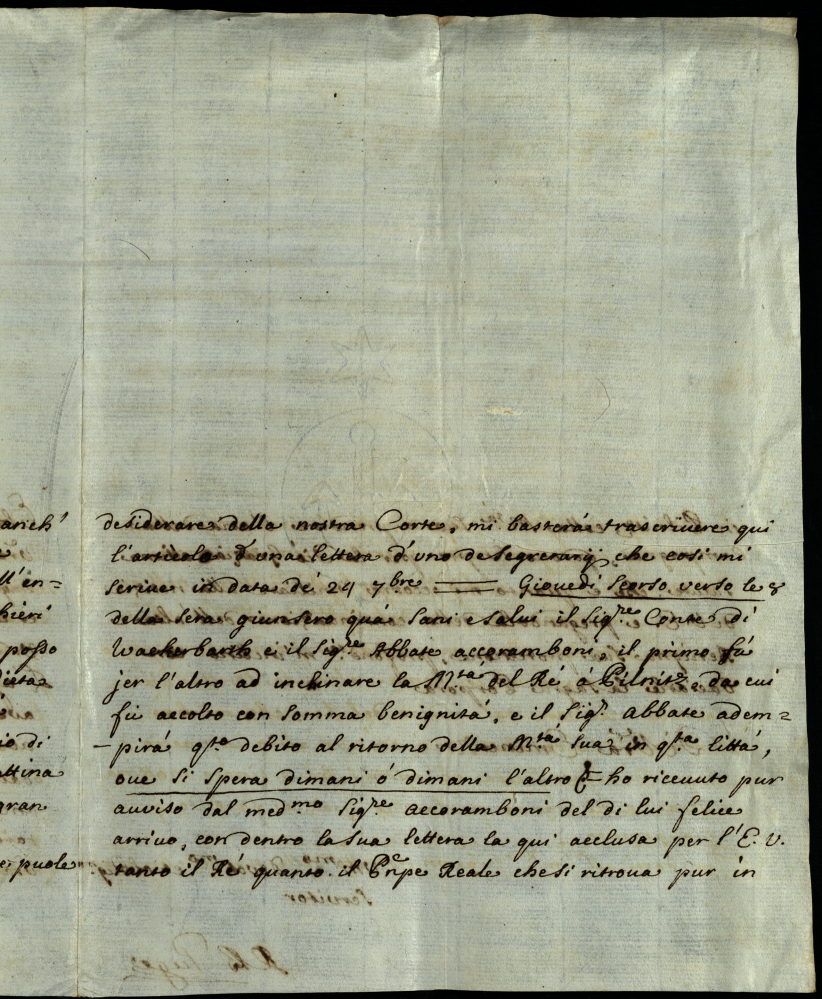 arich'
ll'en=
hieri
posso
dieta
io di
attina
gran
e puole
desiderare della nostra Corte, mi basterá trascriuere qui
l'articolo d'una lettera d'uno de Segretarij che cosi mi
scriue in data de' 24 7bre == Giouedi scorso verso le 8
della sera giunsero quá sani e salui il Sigre Conte di
Wackerbarth e il Sigre Abbate accoramboni, il primo fú
jer l'altro ad inchinare la Mtá del Ré á Pilnitz, da cui
fú accolto con somma benignitá, e il Sigr. abbate adem=
-pirá qto debito al ritorno della Mtá sua in qta Cittá,
oue si spera dimani ó dimani l'altro ho riceuuto pur
auuiso dal medmo Sigre accoramboni del di lui felice
arriuo, con dentro la sua lettera la qui acclusa per l'E. V.
tanto il Ré quanto il Pnpe Reale che si ritroua pur in